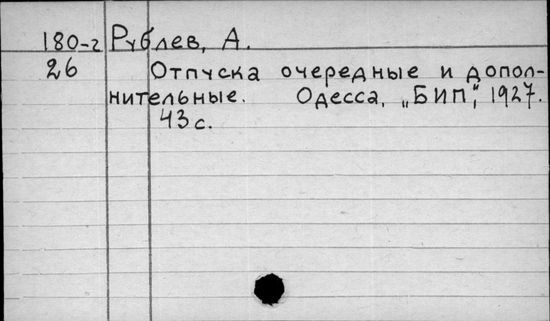 180-г Рублев, А.
26 Отпуска очередные и допол-
нительные. Одесса, „БИП", 1927.
43 с.